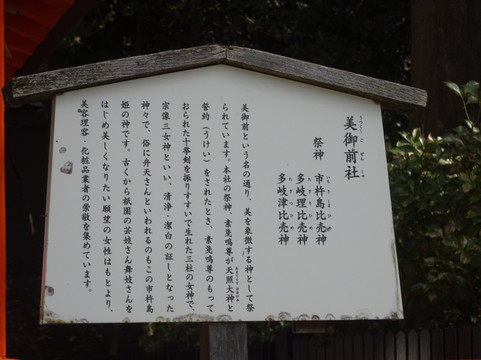 美御前社
うつくしごぜんしゃ
祭神　市杵島比売神
多岐理比売神
多岐津比売神
美御前という名の通り、美を象徴する神として祭
られています。本社の祭神、素戔嗚尊が天照大神と
誓約（うけい）をされたとき、素戔嗚尊のもって
おられた十拳剣を振りすすいで生れた三柱の女神で、
宗像三女神といい、清浄・潔白の証しとなった
神々で、俗に弁天さんといわれるのもこの市杵島
姫の神です。古くから祇園の芸妓さん舞妓さんを
はじめ美しくなりたい願望の女性はもとより、
美容理容・化粧品業者の崇敬を集めています。